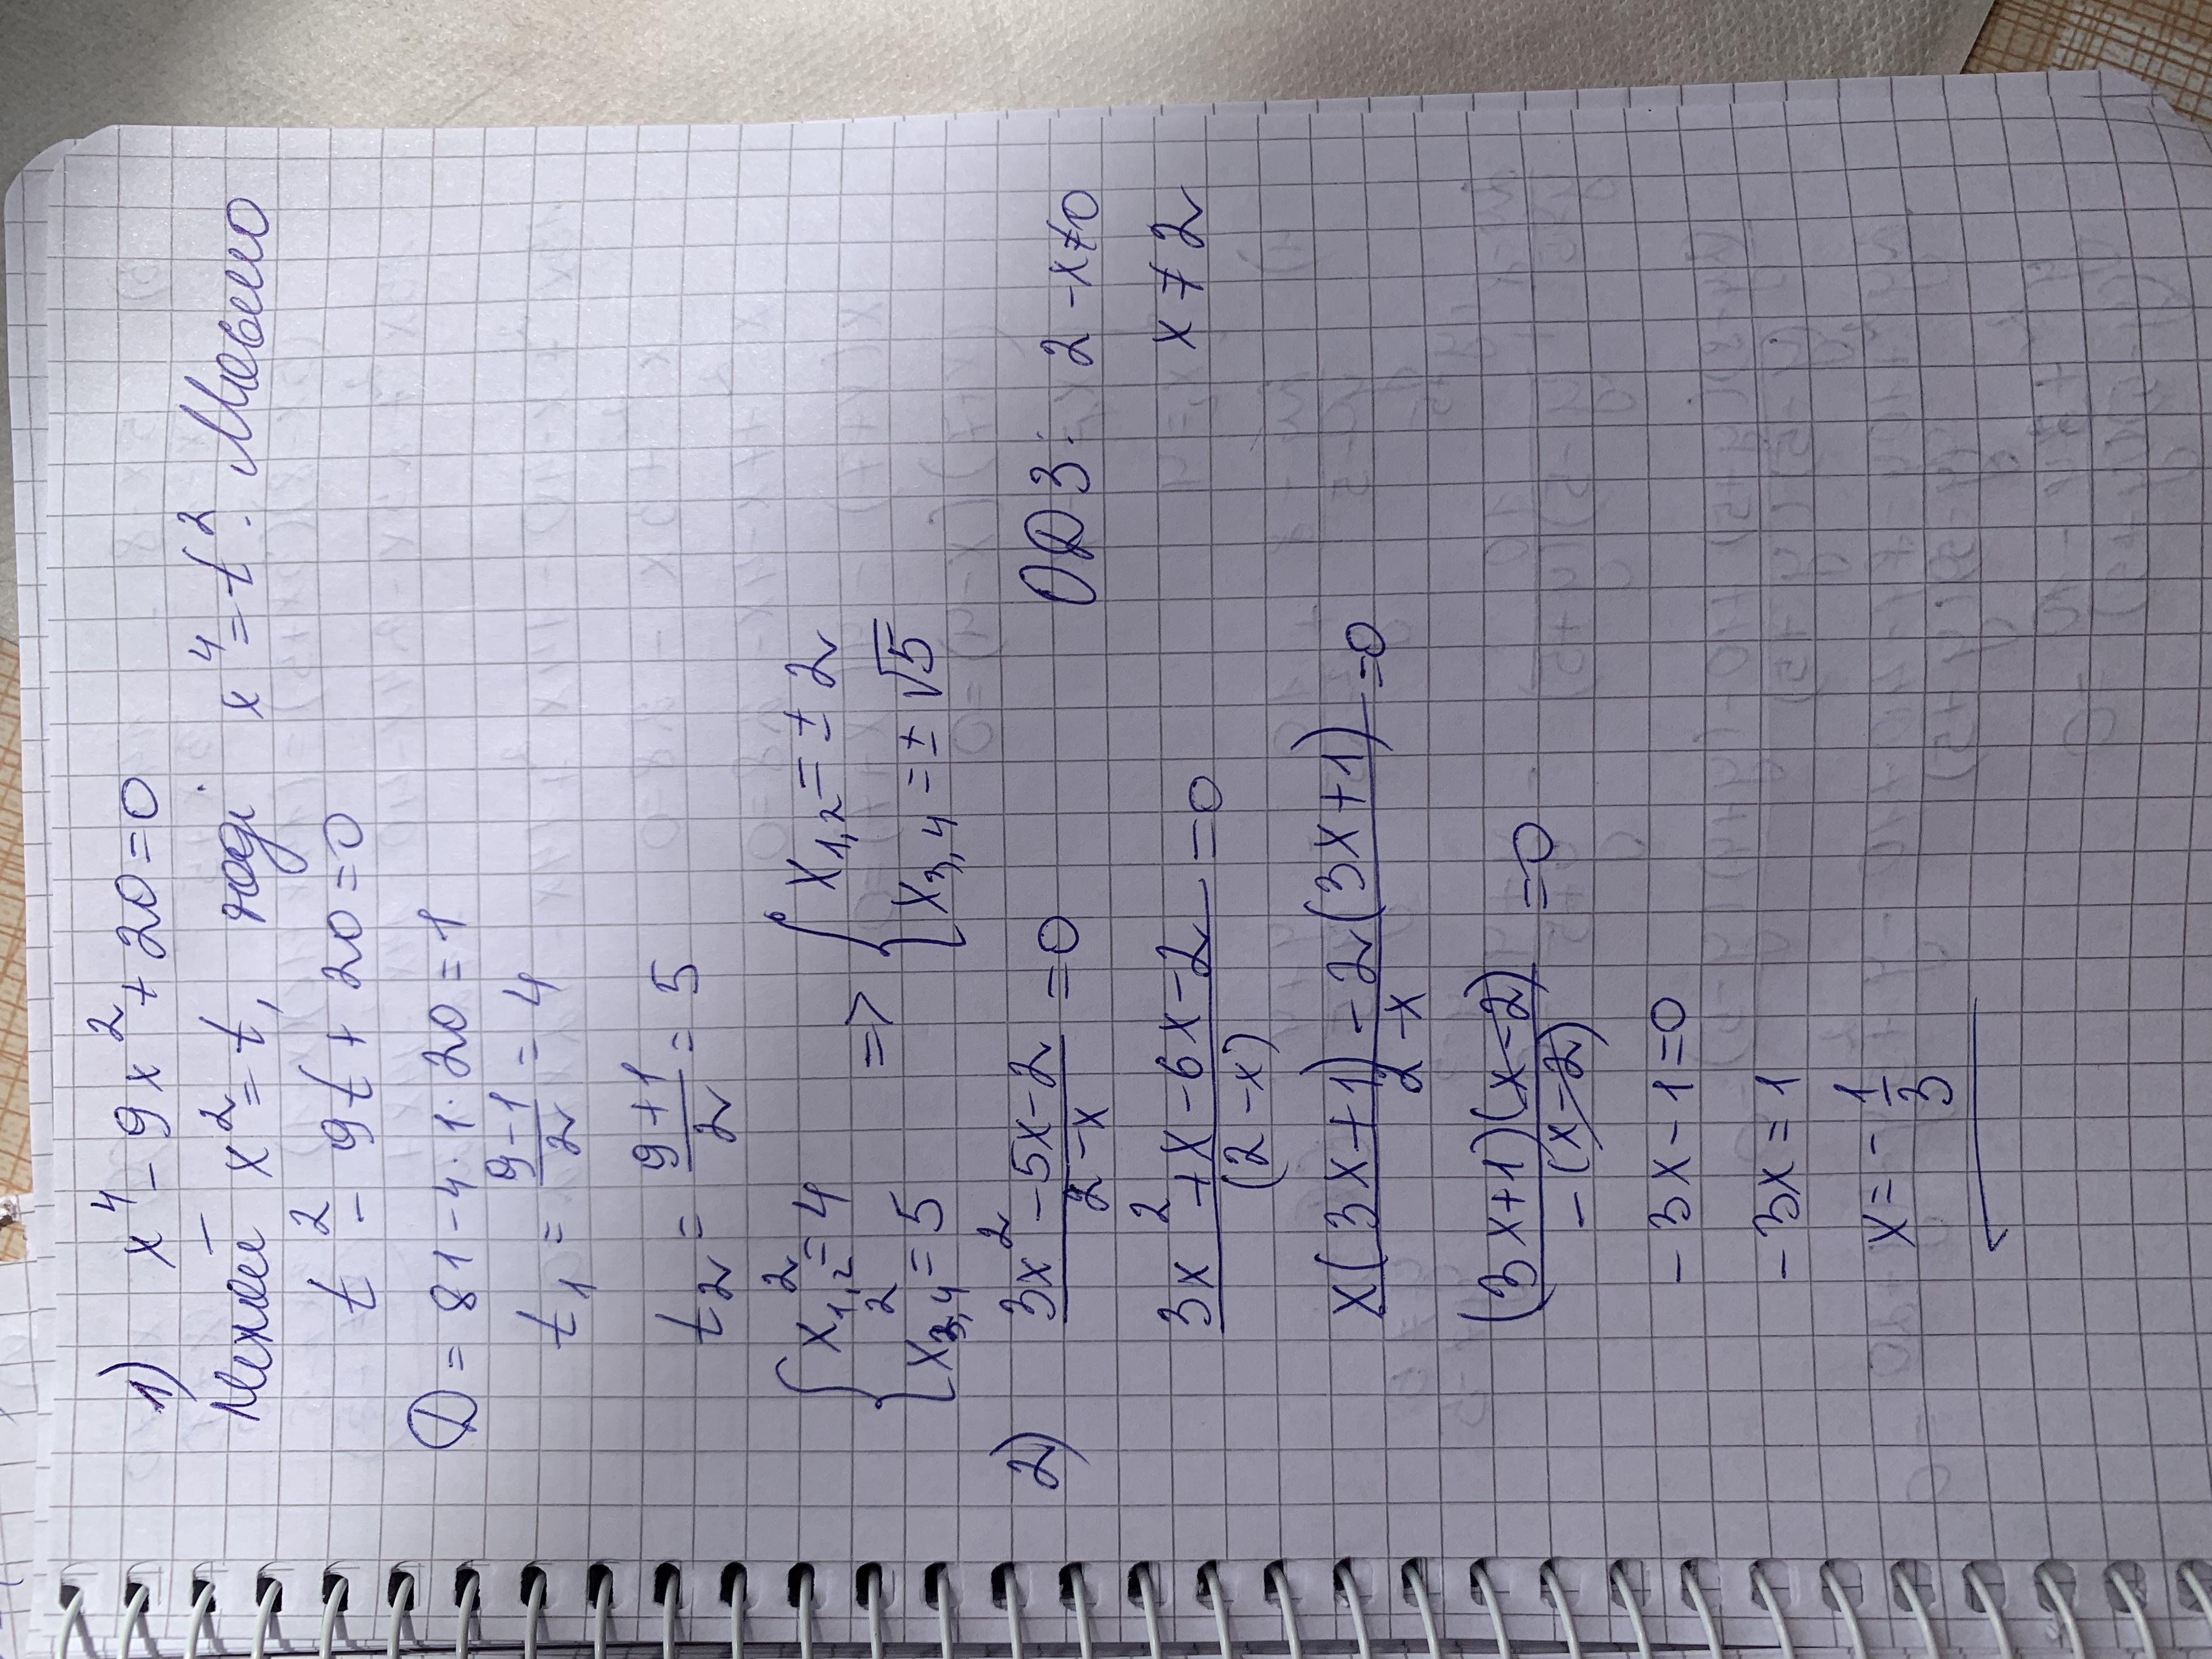 1) x⁴ - 9x² + 20 = 0
Нехай x² = t, тоді x⁴ = t². Маємо
t² - 9t + 20 = 0
D = 81 - 4·1·20 = 1
t₁ = (9-1)/2 = 4
t₂ = (9+1)/2 = 5
{ x²₁,₂ = 4 => { x₁,₂ = ± 2
{ x²₃,₄ = 5 { x₃,₄ = ± √5
2) (3x² - 5x - 2)/(2 - x) = 0 ОДЗ: 2 - x ≠ 0
(3x² + x - 6x - 2)/(2 - x) = 0 x ≠ 2
(x(3x+1) - 2(3x+1))/(2 - x) = 0
((3x+1)(x-2))/(-(x-2)) = 0
- 3x - 1 = 0
- 3x = 1
x = - 1/3